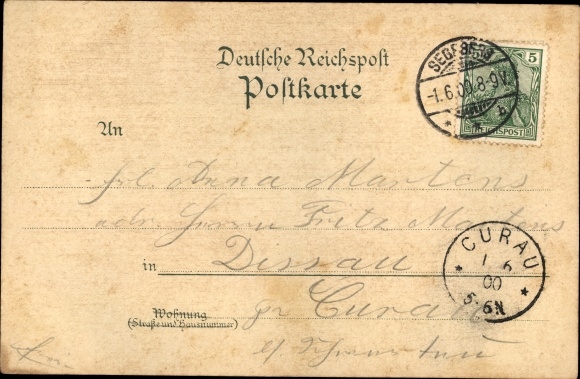 Deutsche Reichspost
Postkarte
SEGEBERG
-1.6.00.8-9V.
b
5
REICHSPOST
An
Frl. Anna Martens
adr. Herrn Fritz Martens
in Dissau
pr Curau
Wohnung
(Straße und Hausnummer)
CURAU
1 6
00
5-6N